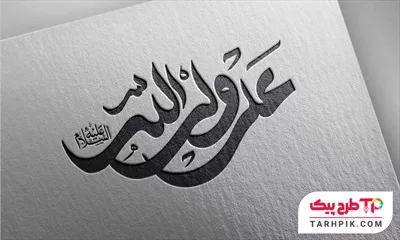 علی ولی الله
علیه السلام
طرح پیک
TARHPIK.COM